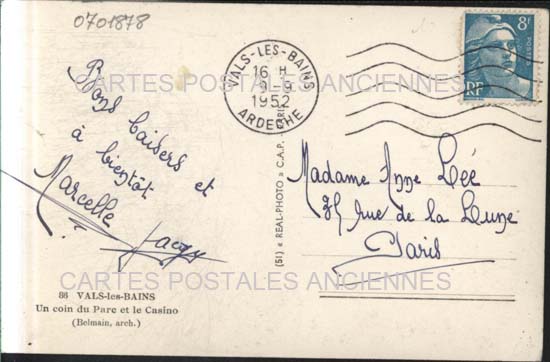 0701878
VALS-LES-BAINS
16 H
9-9
1952
ARDECHE
8F
POSTES
RF
CARTES POSTALES ANCIENNES
Bons baisers et
à bientôt
Marcelle
Jacques
(51) « REAL-PHOTO » C.A.P. PARIS
Madame Anne Léé
35 rue de la Lune
Paris
CARTES POSTALES ANCIENNES
86 VALS-les-BAINS
Un coin du Parc et le Casino
(Belmain, arch.)